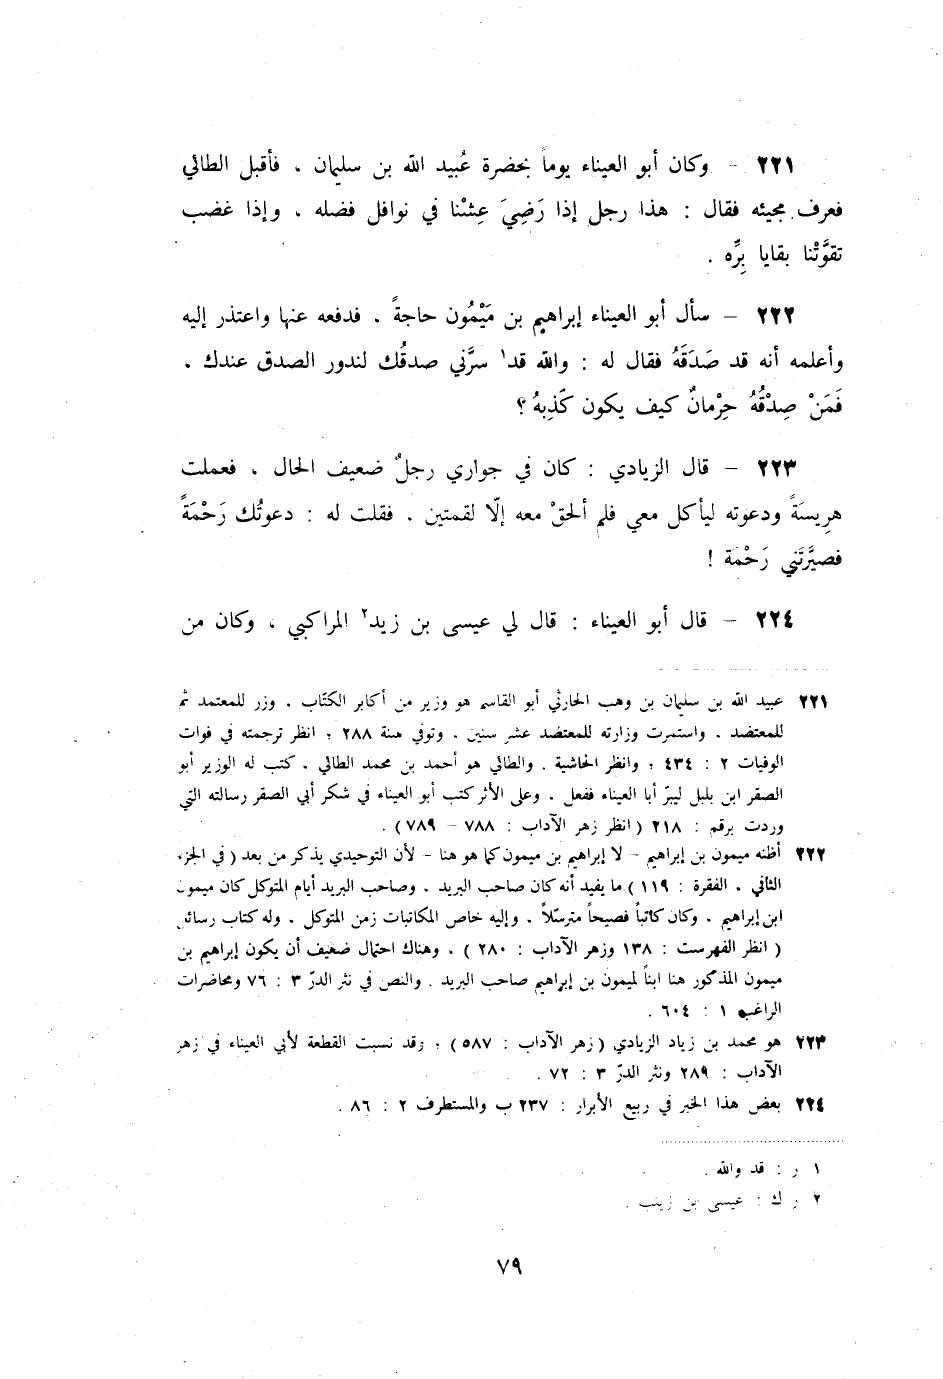 ٢٢١ – وكان أبو العيناء يوماً بحضرة عُبيد الله بن سليمان ، فأقبل الطائي
فعرف مجيئه فقال : هذا رجل إذا رَضِيَ عِشْنا في نوافل فضله ، وإذا غضب
تقوَّتْنا بقايا بِرِّه .
٢٢٢ – سأل أبو العيناء إبراهيم بن مَيْمُون حاجةً ، فدفعه عنها واعتذر إليه
وأعلمه أنه قد صَدَقَهُ فقال له : والله قد١ سرَّني صدقُك لندور الصدق عندك ،
فَمَنْ صِدْقُهُ حِرْمانٌ كيف يكون كَذِبهُ ؟
٢٢٣ – قال الزيادي : كان في جواري رجلٌ ضعيف الحال ، فعملت
هرِيسَةً ودعوته ليأكل معي فلم ألحقْ معه إلّا لقمتين ، فقلت له : دعوتُك رَحْمَةً
فصيَّرتَني رَحْمَة !
٢٢٤ – قال أبو العيناء : قال لي عيسى بن زيد٢ المراكبي ، وكان من
٢٢١ عبيد الله بن سليمان بن وهب الحارثي أبو القاسم هو وزير من أكابر الكتّاب ، وزر للمعتمد ثم
للمعتضد ، واستمرت وزارته للمعتضد عشر سنين ، وتوفي سنة ٢٨٨ ؛ انظر ترجمته في فوات
الوفيات ٢ : ٤٣٤ ؛ وانظر الحاشية . والطائي هو أحمد بن محمد الطائي . كتب له الوزير أبو
الصقر ابن بلبل ليبرّ أبا العيناء ففعل . وعلى الأثر كتب أبو العيناء في شكر أبي الصقر رسالته التي
وردت برقم : ٢١٨ ( انظر زهر الآداب : ٧٨٨ – ٧٨٩ ) .
٢٢٢ أظنه ميمون بن إبراهيم – لا إبراهيم بن ميمون كما هو هنا – لأن التوحيدي يذكر من بعد ( في الجزء
الثاني ، الفقرة : ١١٩ ) ما يفيد أنه كان صاحب البريد . وصاحب البريد أيام المتوكل كان ميمون
ابن إبراهيم . وكان كاتباً فصيحاً مترسّلاً . وإليه خاص المكاتبات زمن المتوكل . وله كتاب رسائل
( انظر الفهرست : ١٣٨ وزهر الآداب : ٢٨٠ ) . وهناك احتمال ضعيف أن يكون إبراهيم بن
ميمون المذكور هنا ابناً لميمون بن إبراهيم صاحب البريد . والنص في نثر الدرّ ٣ : ٧٦ ومحاضرات
الراغب ١ : ٦٠٤ .
٢٢٣ هو محمد بن زياد الزيادي ( زهر الآداب : ٥٨٧ ) ؛ وقد نسبت القطعة لأبي العيناء في زهر
الآداب : ٢٨٩ ونثر الدرّ ٣ : ٧٢ .
٢٢٤ بعض هذا الخبر في ربيع الأبرار : ٢٣٧ ب والمستطرف ٢ : ٨٦ .
١ ر : قد والله .
٢ ر ك : عيسى بن زينب .
٧٩